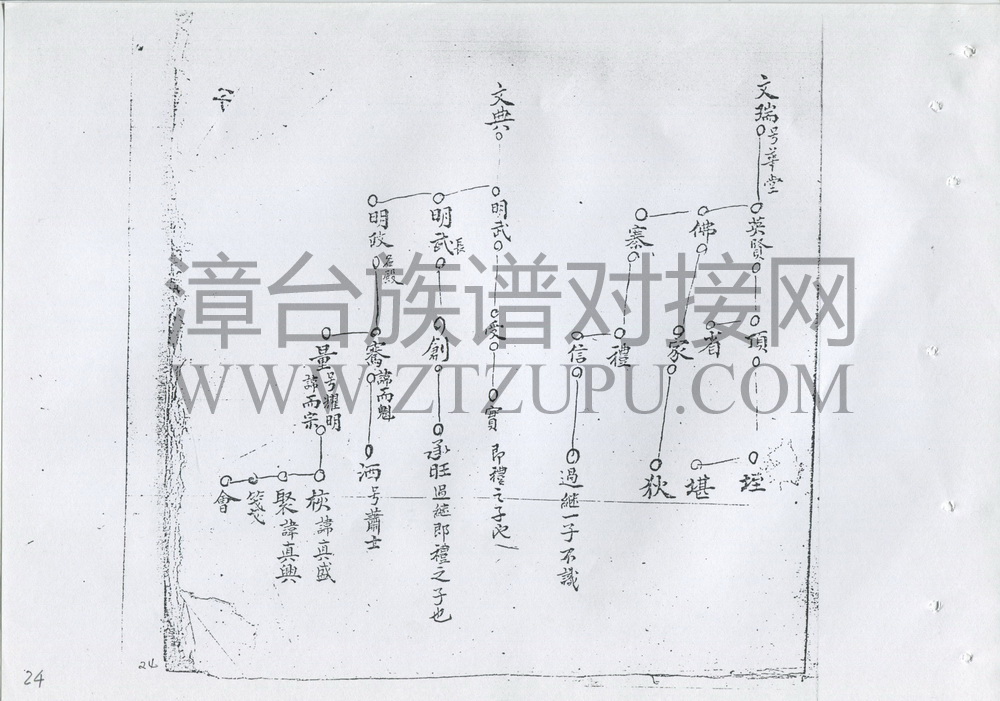 文瑞号華堂
英賢
佛
寨
頂
省
家
禮
信
堪
狄
過継一子不識
文典
明武
愛
實 即禮之子也
明武 長
創
承旺過継即禮之子也
明政
諱而魁
洒号蕭士
量号耀明
諱而宗
諱真盛
聚諱真興
會
漳台族谱对接网
WWW.ZTZUPU.COM
24
24